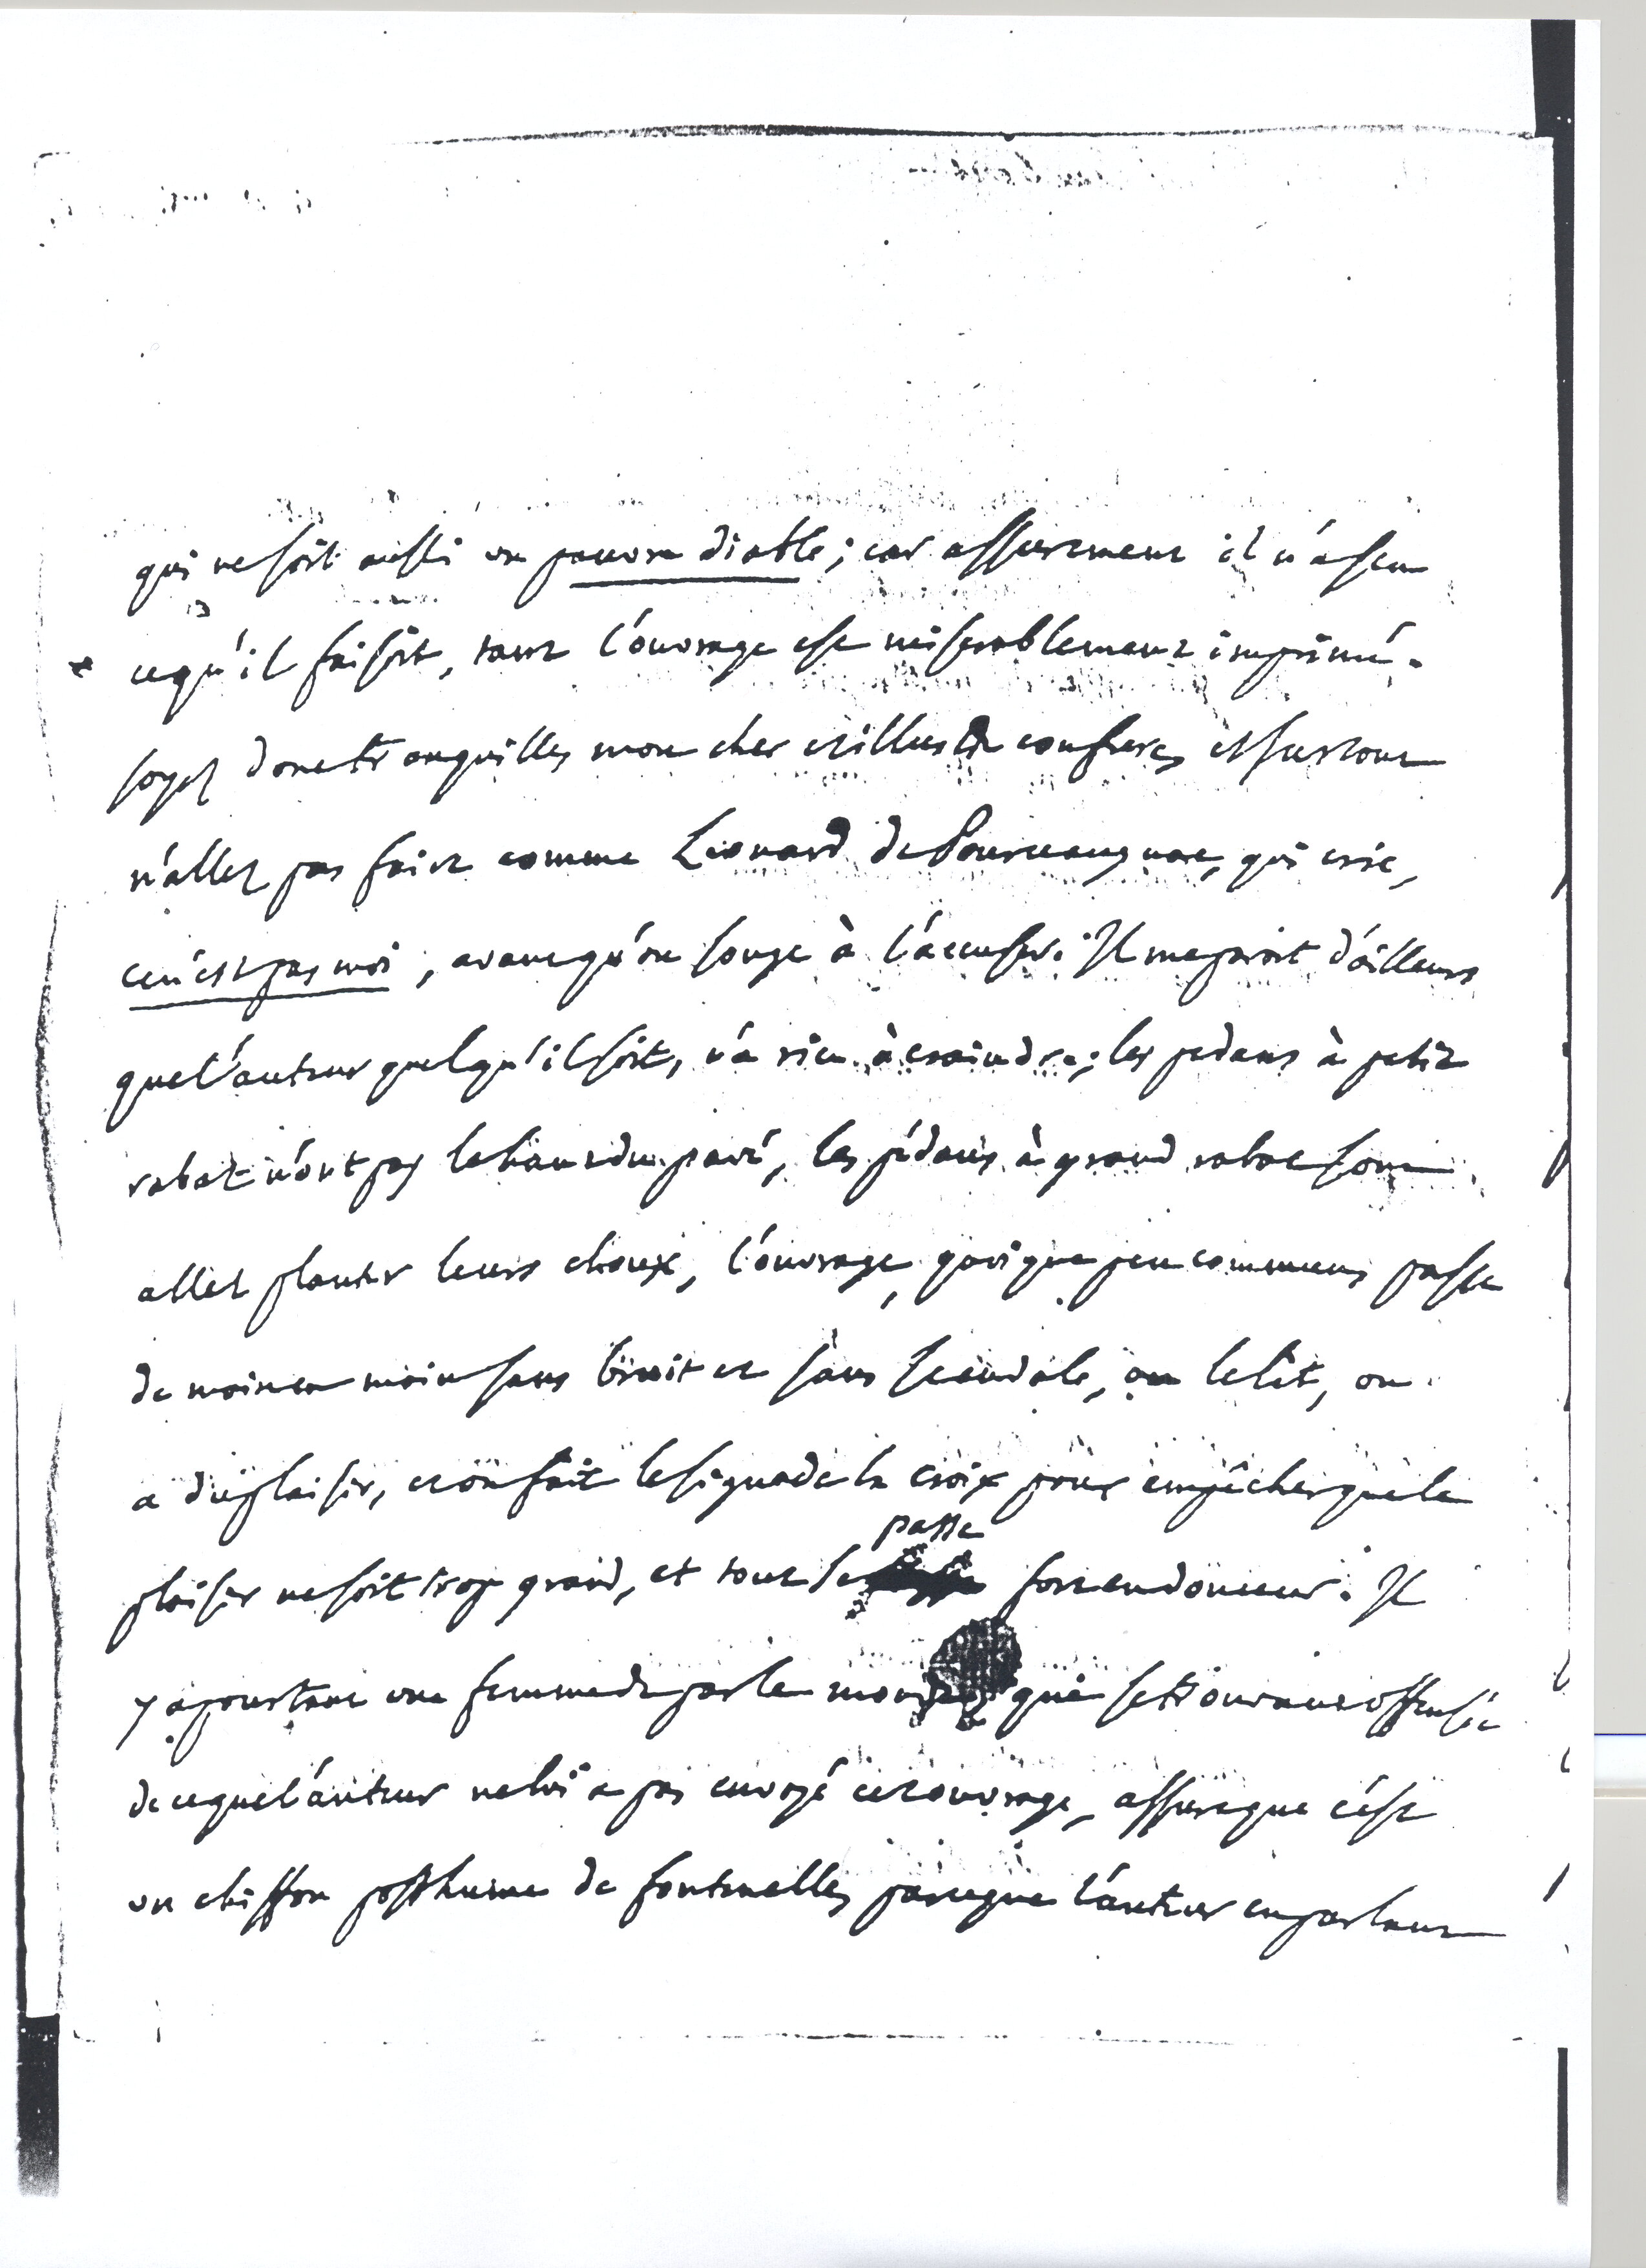 qui ne soit aussi un pauvre diable; car assurement il n'a sçu
ce qu'il faisoit, tant l'ouvrage est miserablement imprimé.
soyez donc tranquille, mon cher et illustre confrere, et surtout
n'allez pas faire comme Léonard de Pourceaugnac, qui crie,
ce n'est pas moi, avant qu'on songe à l'accuser. Il me paroit d'ailleurs
que l'auteur quel qu'il soit, n'a rien à craindre; les pedans à petit
rabat n'ont pas le haut du pavé, les pédans à grand rabat sont
allez planter leurs choux, l'ouvrage, quoique peu commun, passe
de main en main sans bruit et sans scandale, on le lit, on
a du plaisir, et on fait le signe de la croix pour empêcher que le
passe
plaisir ne soit trop grand, et tout se fort en douceur. Il
y a pourtant une femme de par le monde, qui se trouvant offensée
de ce que l'auteur ne lui a pas envoyé cet ouvrage, assure que c'est
un chiffon posthume de fontenelle, parce que l'auteur en parlant